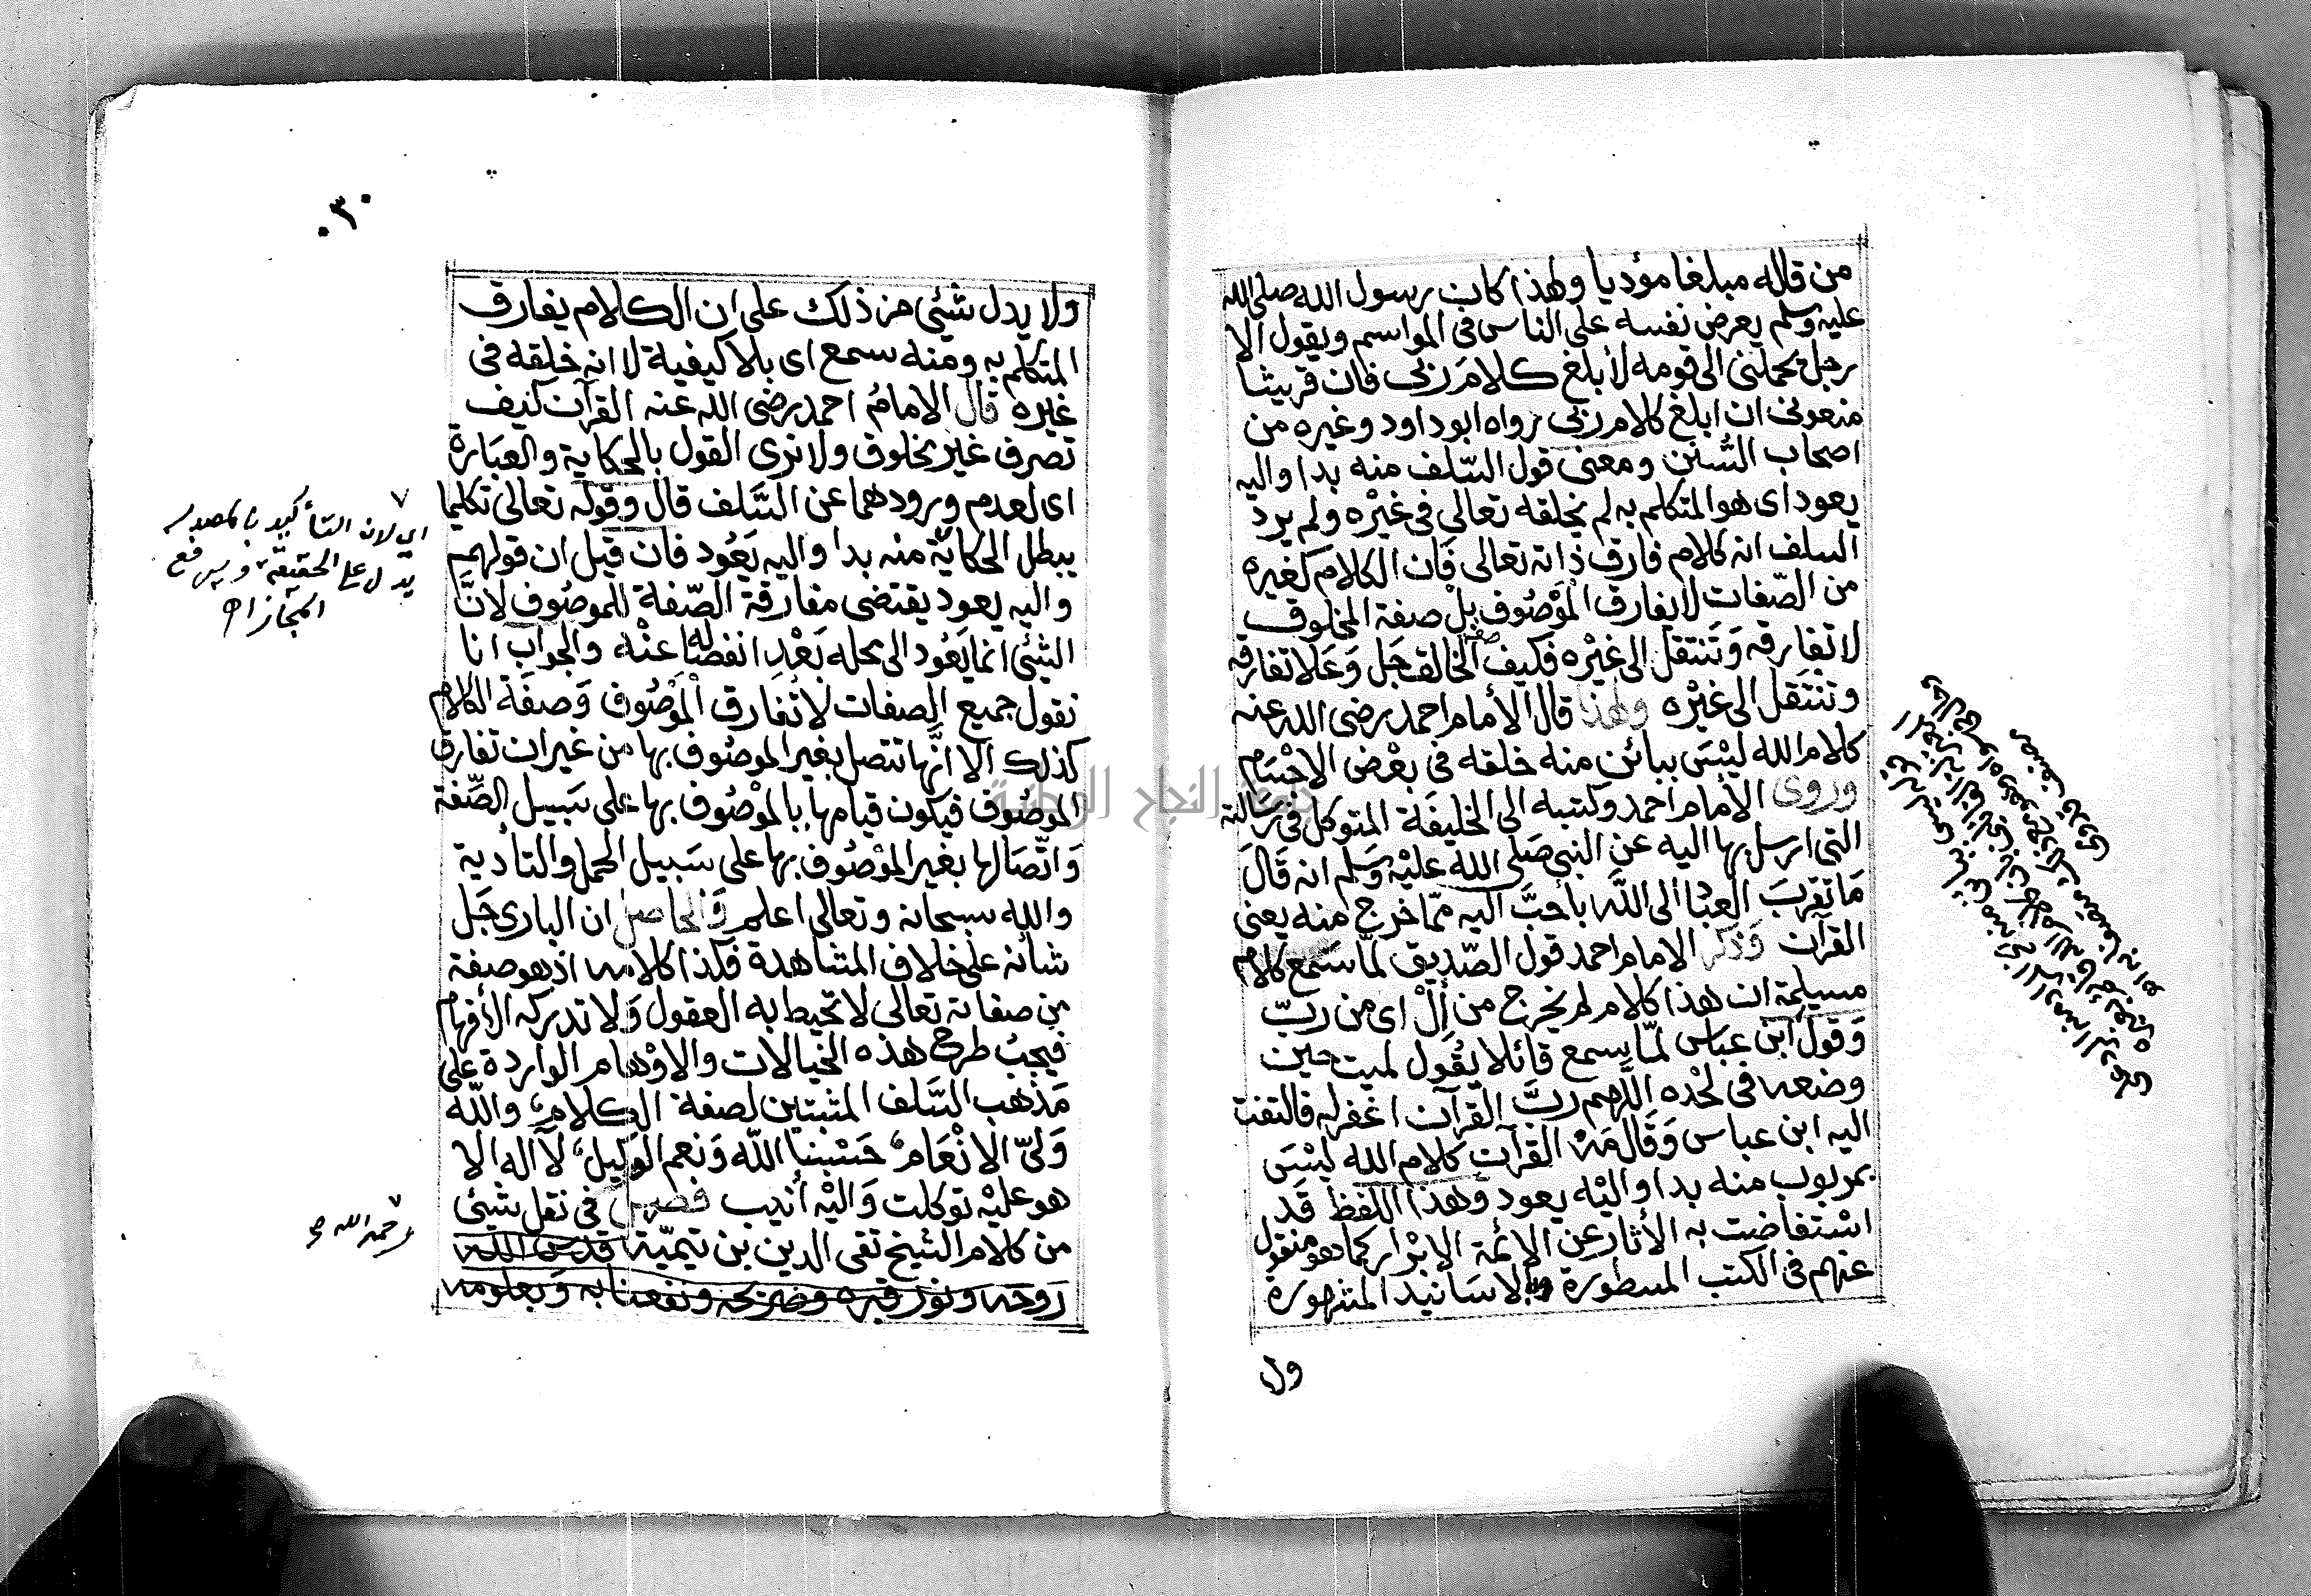 من قاله مبلغا مؤديا ولهذا كان رسول الله صلى الله
عليه وسلم يعرض نفسه على الناس فى المواسم ويقول الا
رجل يحملنى الى قومه لأبلغ كلام ربى فان قريشا
منعونى ان ابلغ كلام ربى رواه ابو داود وغيره من
اصحاب السُّنن ومعنى قول السّلف منه بدا واليه
يعود اى هو المتكلم به لم يخلقه تعالى فى غيْره ولم يرد
السلف انه كلام فارق ذاته تعالى فان الكلام كغيره
من الصّفات لا يفارق الموْصُوف بل صفة المخلوق
لا تفارقه وَتنتقل الى غيْره فكيف صفة الخالق جَل وَعَلا تفارقه
وتنتقل الى غيْره ولهذا قال الأمام احمد رضى الله عنه
كلام الله ليْسَ ببائن منه خلقه فى بعْض الاجْسَام
وروى الامام احمد وكتبه الى الخليفَة المتوكل فى رسَالته
التى ارسل بها اليه عن النبي صَلى الله عليْه وَسَلم انه قالَ
مَا تقربَ العبْد الى اللّه بأحبَّ اليه ممّا خرج منه يعنى
القرآن وَذكر الامام احمد قول الصّديق لمّا سَمع كلام
مسيلمة ان هذا كلام لم يخرج من إلّ اى من ربّ
وَقول ابن عباس لمّا سمع قائلا يقُول لميت حين
وضعه فى لحْده اللّهم ربَّ القرآن اغفرله فالتفت
اليه ابن عباس وَقال مَهْ القرآن كلام الله ليْسَ
بمربوب منه بدا واليْه يعود وهذا اللفظ قَد
اسْتفاضت به الأثار عن الائمة الابْرار كما هو منقول
عنهم فى الكتب المسطورة والاسَانيد المشهورة
ولا
٣٠
ولا يدل شئى من ذلك على ان الكلام يفارق
المتكلم به ومنه سمع اى بلا كيفية لا انه خلقه فى
غيره قال الامامُ احمد رضى الله عنه القرآن كيف
تصرف غير مخلوق ولا نرى القول بالحكاية والعبَارة
اى لعدم ورودهما عن السَّلف قال وقوله تعالى تكليما
يبطل الحكاية منه بدا واليه يَعُود فان قيل ان قولهم
واليه يعود يقتضى مفارقة الصّفة للموصُوف لانَّ
الشئى انما يَعُود الى محله بَعْد انفصاله عنْه والجوابُ انا
نقول جميع الصفات لا تفارق الموْصُوف وَصفَة الكلام
كذلك الا انَّها تتصل بغير الموصُوف بها من غير ان تفارق
الموصُوف فيكون قيامها بالموْصُوف بها على سَبيل الصِّفة
وَاتّصَالها بغير الموْصُوف بها على سَبيل الحمل والتأدية
والله سبحانه وتعالى اعلم وَالحاصل ان البارى جَل
شانه على خلاف المشاهدة فكذا كلامه اذ هو صفة
من صفاته تعالى لا تحيط به العقول وَلا تدركه الأفهام
فيجبُ طرح هذه الخيالات والاوْهام الواردة على
مَذهب السَّلف المثبتين لصفة الكلام، واللّه
وَلىّ الانْعَام، حَسْبنا اللّه وَنعم الوَكيل، لآ اله الا
هو عليْه توكلت وَاليْه أنيب فصل فى نقل شئى
من كلام الشيخ تقى الدين بن تيميّة قدس اللّه
روحه ونور قبره وضريحه ونفعنا به وَبعلومه
اي لان التأكيد بالمصدر
يدل على الحقيقة ويرفع
المجاز اه
رحمه الله
جامعة النجاح الوطنية